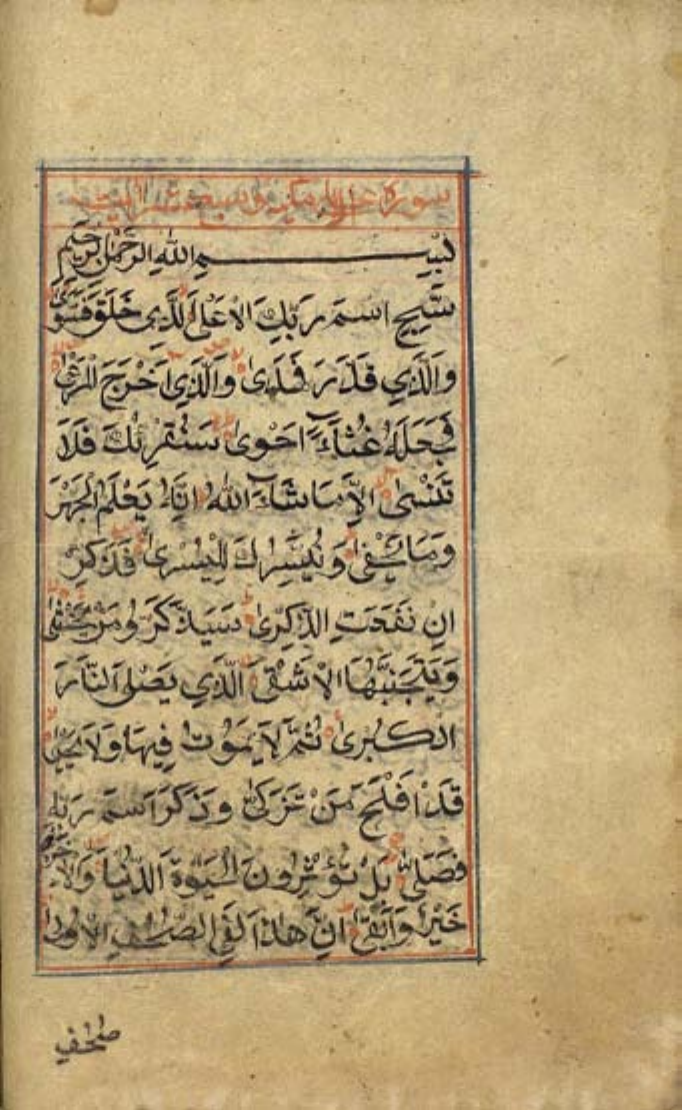 سورة
بِسْمِ اللّٰهِ الرَّحْمٰنِ الرَّحِيْمِ
سَبِّحِ اسْمَ رَبِّكَ الْاَعْلَى الَّذِي خَلَقَ فَسَوّٰى
وَالَّذِي قَدَّرَ فَهَدٰى وَالَّذِي اَخْرَجَ الْمَرْعٰى
فَجَعَلَهُ غُثَاءً اَحْوٰى سَنُقْرِئُكَ فَلَا
تَنْسٰى اِلَّا مَا شَاءَ اللّٰهُ اِنَّهُ يَعْلَمُ الْجَهْرَ
وَمَا يَخْفٰى وَنُيَسِّرُكَ لِلْيُسْرٰى فَذَكِّرْ
اِنْ نَفَعَتِ الذِّكْرٰى سَيَذَّكَّرُ مَنْ يَخْشٰى
وَيَتَجَنَّبُهَا الْاَشْقَى الَّذِي يَصْلَى النَّارَ
الْكُبْرٰى ثُمَّ لَا يَمُوتُ فِيهَا وَلَا يَحْيٰى
قَدْ اَفْلَحَ مَنْ تَزَكّٰى وَذَكَرَ اسْمَ رَبِّهِ
فَصَلّٰى بَلْ تُؤْثِرُونَ الْحَيٰوةَ الدُّنْيَا وَالْاٰخِرَةُ
خَيْرٌ وَاَبْقٰى اِنَّ هٰذَا لَفِي الصُّحُفِ الْاُولٰى
صُحُفِ